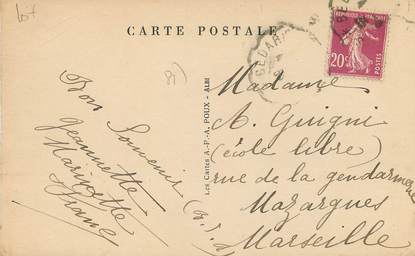 lot
CARTE POSTALE
BÉDARI
20c
Bon Souvenir
Jeannette
Marinette
Franc
Les Cartes A.-P.-A. POUX - ALBI
Madame
A. Guigni
(école libre)
rue de la gendarmerie
Mazargues
Marseille